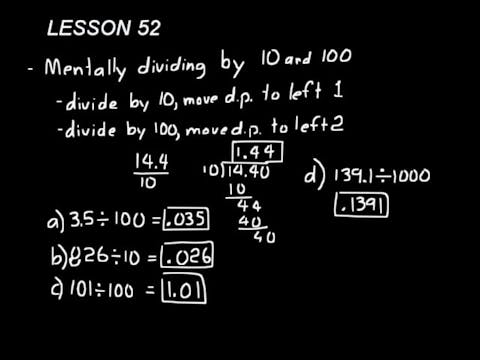 LESSON 52
- Mentally dividing by 10 and 100
- divide by 10, move d.p. to left 1
- divide by 100, move d.p. to left 2
14.4
10
1.44
10 14.40
10
44
40
40
d) 139.1÷1000
.1391
a) 3.5÷100 = .035
b) ÷10 = .026
c) 101÷100 = 1.01